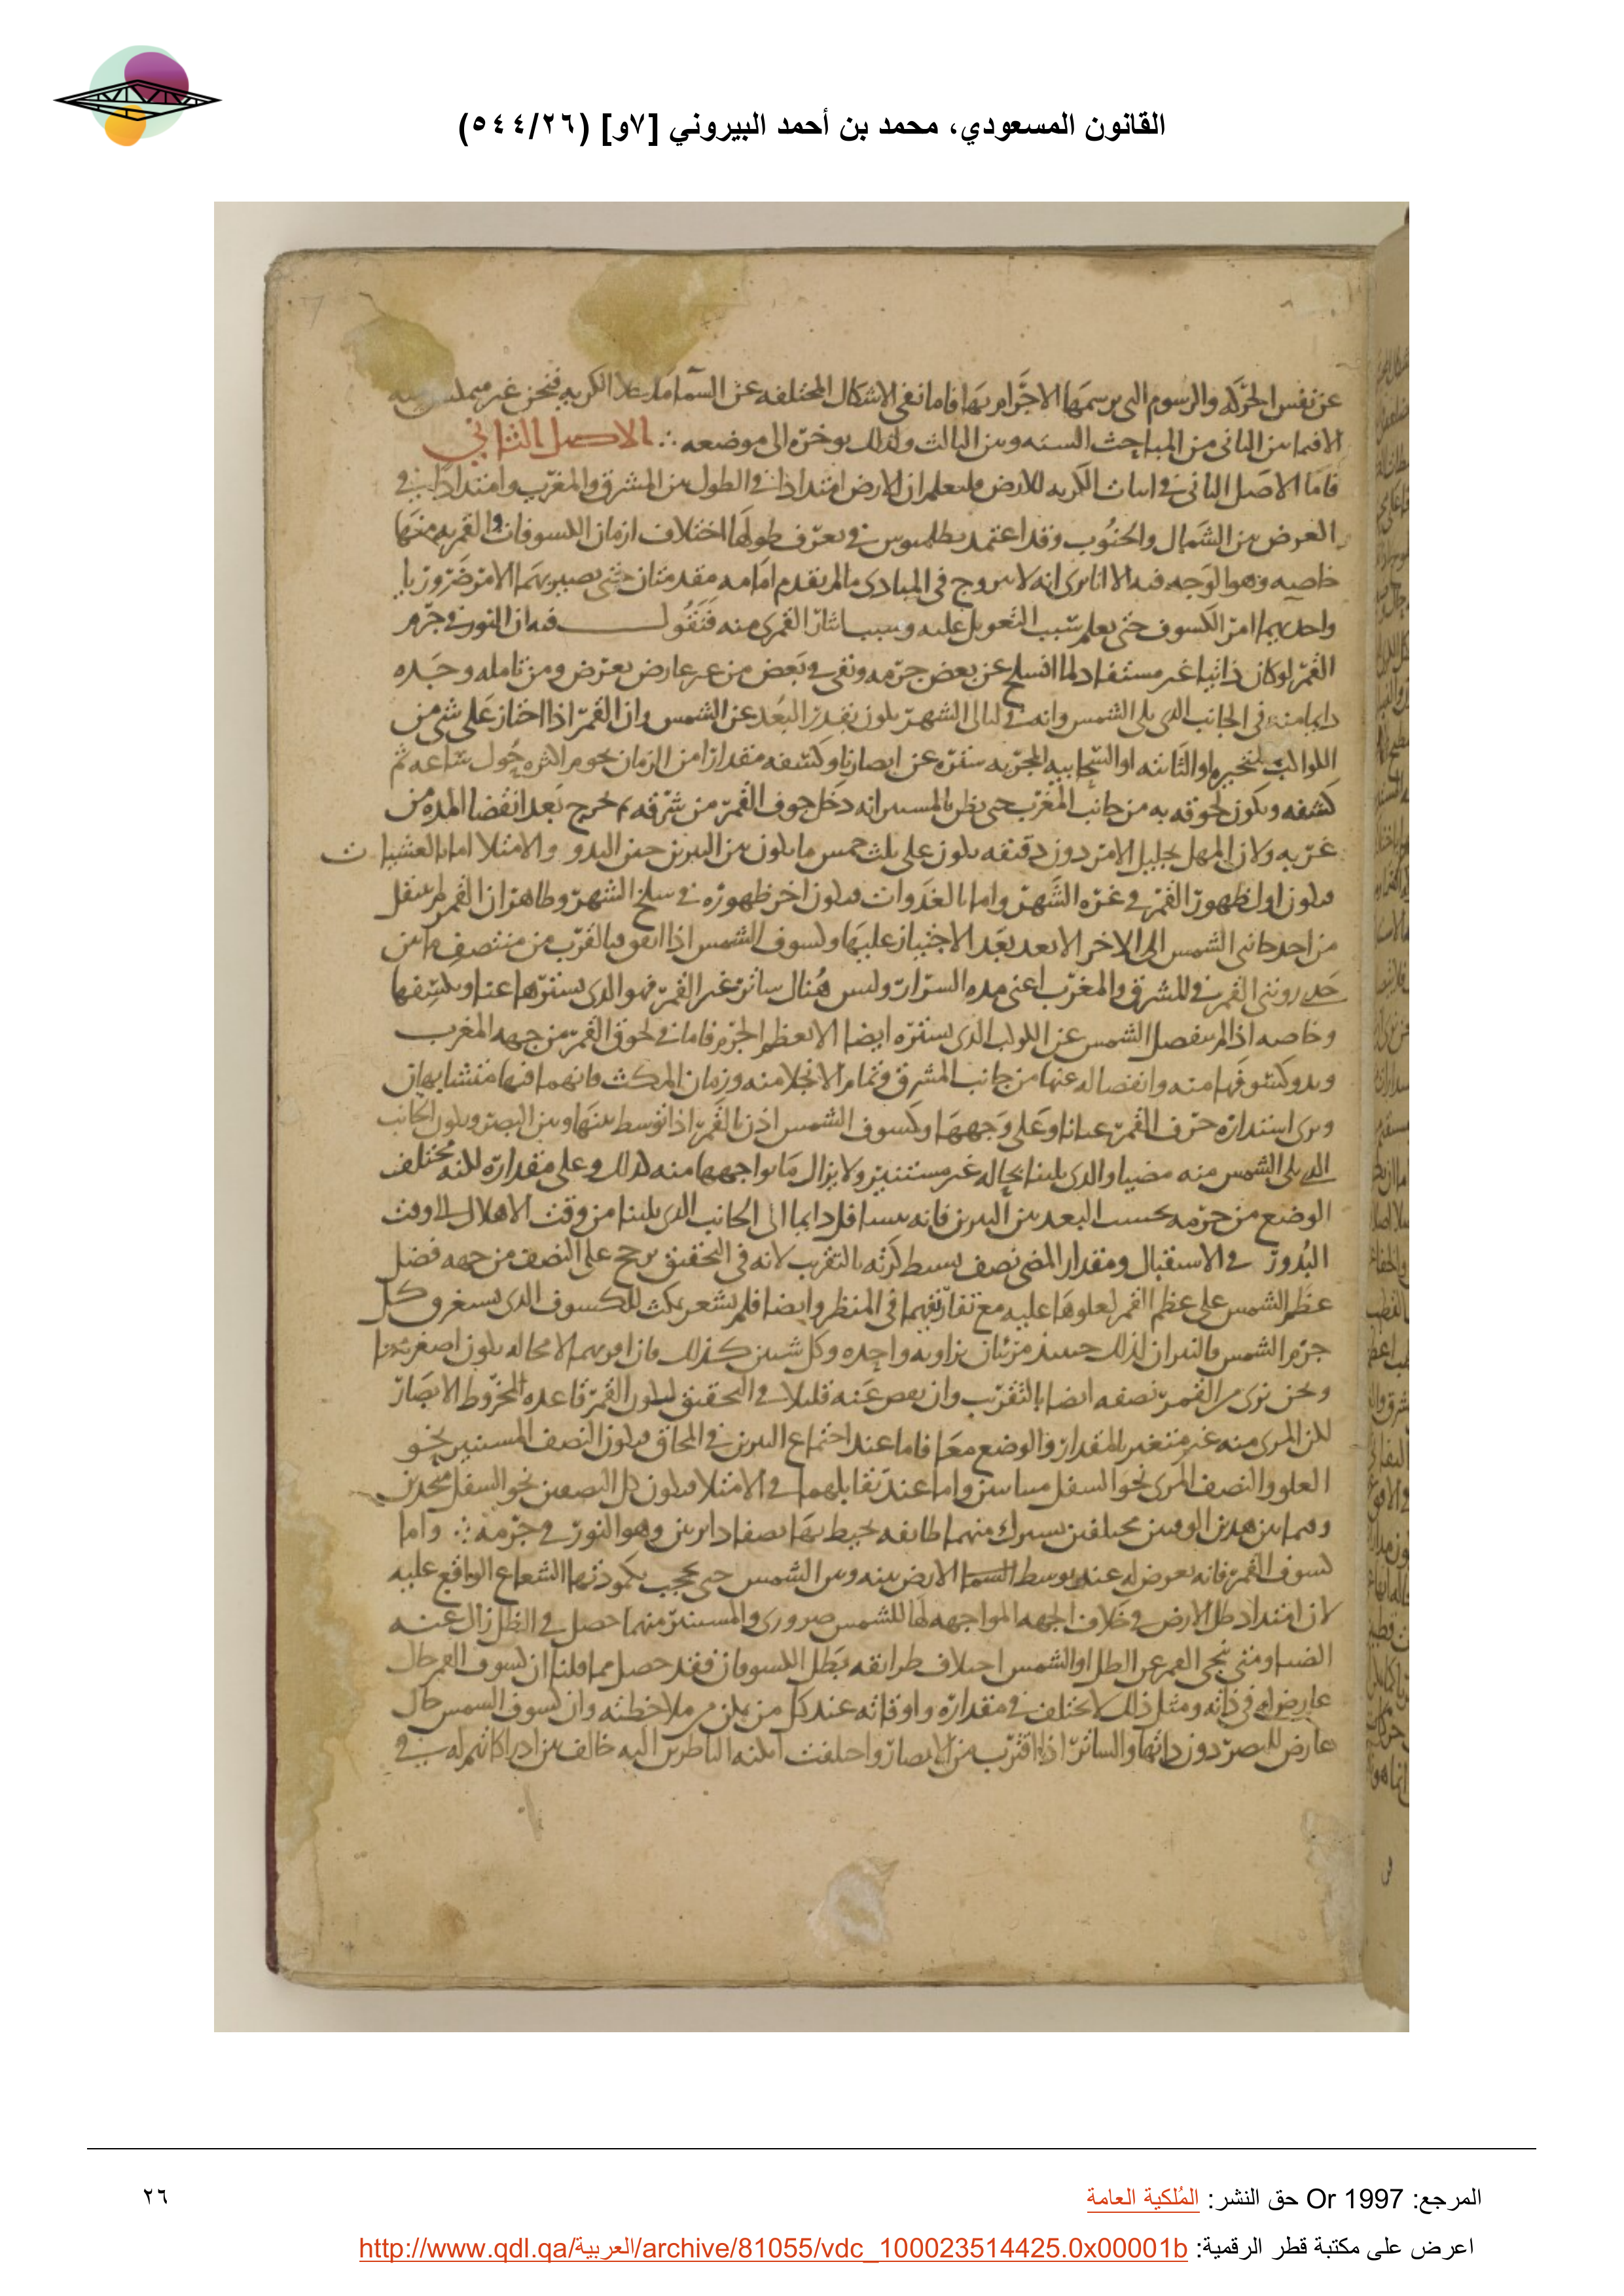 القانون المسعودي، محمد بن أحمد البيروني [٧و] (٥٤٤/٢٦)
عن نفس الحركه والرسوم التى يرسمها الاجرام بها فاما نفى الاشكال المختلفه عن السما ما خلا الكريه فنحن غير
الا فيما بين الثانى من المباحث السته وبين الثالث ولذلك يوخره الى موضعه ∴ الاصل الثاني
فاما الاصل الثانى فى اثبات الكريه للارض فليعلم ان للارض امتدادا فى الطول بين المشرق والمغرب وامتدادا فى
العرض بين الشمال والجنوب وقد اعتمد بطلميوس فى تعرف طولها اختلاف ازمان الكسوفات والقمريه منها
خاصيه وهو الوجه فيه الا انا نرى انه لا يروج فى المبادى ما لم يتقدم امامه مقدمتان حتى يصير بهما الامر ضروريا
واحديهما امر الكسوف حتى يعلم سبب التعويل عليه وسبب ايثار القمرى منه فنقول فيه ان النور فى جرم
القمر لو كان ذاتيا غير مستفاد لما انسلخ عن بعض جرمه وبقى فى بعض من غير عارض يعترض ومن تامله وجده
دايما منه فى الجانب الذى يلى الشمس وانه فى ليالى الشهر يكون بقدر البعد عن الشمس وان القمر اذا اجتاز على شى من
الكواكب المتحيره او الثابته او السحابيه المجريه ستره عن ابصارنا وكسفه مقدارا من الزمان يحوم اكثره حول ساعه ثم
كشفه ويكون لحوقه به من جانب المغرب حتى يظن بالمستتر انه دخل جوف القمر من شرقه ثم خرج بعد انقضا المده من
غربه ولان المهل بجليل الامر دون دقيقه يكون على ثلث خمس ما يكون بين النيرين حين البدو والامتلا اما بالعشيات
فيكون اول ظهور القمر فى غره الشهر واما بالغدوات فيكون اخر ظهوره فى سلخ الشهر وظاهر ان القمر لم ينتقل
من احد جانبى الشمس الى الاخر الا بعد بعد الاجتياز عليها وكسوف الشمس اذا اتفق فبالقرب من منتصف ما بين
حدى رويتى القمر فى المشرق والمغرب اعنى مده السرار وليس هناك ساتر غير القمر فهو الذى يسترها عنا ويكسفها
وخاصه اذا لم ينفصل الشمس عن الكوكب الذى يستره ايضا الا بعظم الجرم فاما فى لحوق القمر من جهه المغرب
وبدو كسوفها منه وانفصاله عنها من جانب المشرق وتمام الانجلا منه وزمان المكث فانهما فيها متشابهان
ويرى استداره حرف القمر عيانا وعلى وجهها وكسوف الشمس اذن بالقمر اذا توسط بينها وبين البصر ويكون الجانب
الذى يلى الشمس منه مضيا والذى يلينا بحاله غير مستنير ولا يزال ما يواجهها منه كذلك وعلى مقداره لكنه مختلف
الوضع من جرمه بحسب البعد بين النيرين فانه يتسافل دايما الى الجانب الذى يلينا من وقت الاهلال الى وقت
البدور فى الاستقبال ومقدار المضى نصف بسيط كرته بالتقريب لانه فى التحقيق يرجح على النصف من جهه فضل
عظم الشمس على عظم القمر لعلوها عليه مع تقاربهما فى المنظر وايضا فلم يشعر بمكث للكسوف الذى يستغرق كل
جرم الشمس فالنيران لذلك حينيذ مرئيان بزاويه واحده وكل شيين كذلك فان اقربهما لا محاله يكون اصغرهما
ونحن نرى من القمر نصفه ايضا بالتقريب وان نقص عنه قليلا فى التحقيق ليكون القمر قاعده لمخروط الابصار
لكن المرى منه غير متغير المقدار والوضع معا فاما عند اجتماع النيرين فى المحاق فيكون النصف المستنير نحو
العلو والنصف المرى نحو السفل متباينين واما عند تقابلهما فى الامتلا فيكون كل النصفين نحو السفل متحدين
وفيما بين هذين الوقتين مختلفين يشترك منهما طائفه يحيط بها نصفا دايرتين وهو النور فى جرمه ∴ واما
كسوف القمر فانه يعرض له عند توسط السما الارض بينه وبين الشمس حتى يحجب بكمودتها الشعاع الواقع عليه
لان امتداد ظل الارض فى خلاف الجهه المواجهه لها للشمس ضرورى والمستنير منهما حصل فى الظل زال عنه
الضيا ومتى نحى القمر عن الظل او الشمس اختلاف طرائقه بطل الكسوفان فقد حصل مما قلنا ان كسوف القمر حال
عارض له فى ذاته ومثل ذلك لا يختلف فى مقداره واوقاته عند كل من تمكن من ملاحظته وان كسوف الشمس حال
عارض للبصر دون ذاتها والساتر اذا اقترب من الابصار واختلفت امكنه الناظرين اليه خالف بين ادراكاتهم له فى
المرجع: Or 1997 حق النشر: المُلكية العامة
٢٦
اعرض على مكتبة قطر الرقمية: http://www.qdl.qa/العربية/archive/81055/vdc_100023514425.0x00001b